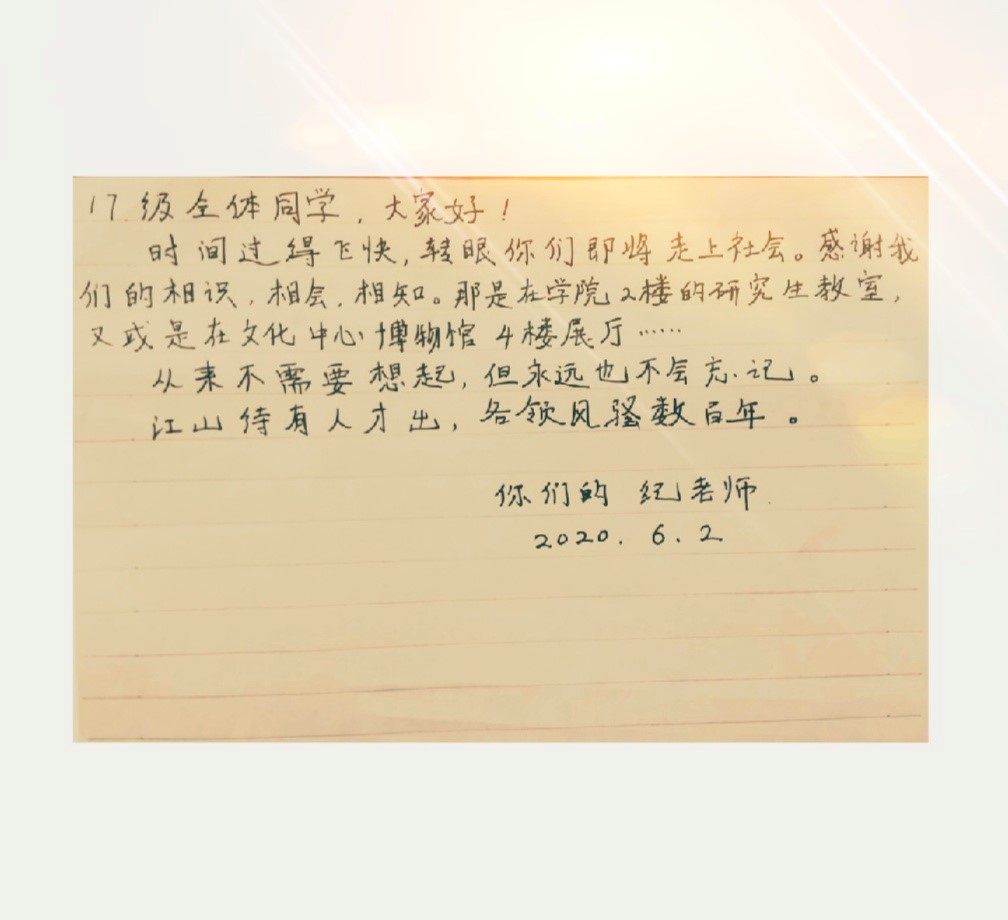 17级全体同学，大家好！
时间过得飞快，转眼你们即将走上社会。感谢我
们的相识，相会，相知。那是在学院2楼的研究生教室，
又或是在文化中心博物馆4楼展厅……
从来不需要想起，但永远也不会忘记。
江山待有人才出，各领风骚数百年。
你们的 纪老师
2020.6.2